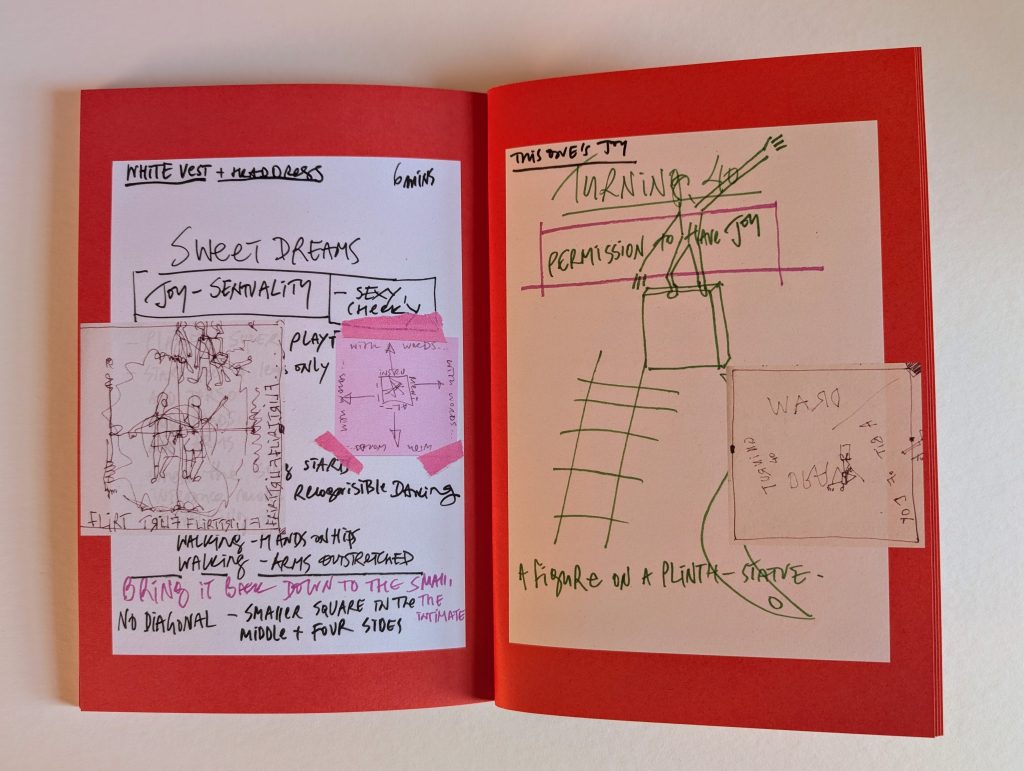 WHITE VEST + HEADDRESS 6 MINS
SWEET DREAMS
JOY - SENTUALITY - SEXY
CHEEKY
PLAYF
ONLY
WITH WORDS...
WITH WORDS...
WITH
WORDS...
START
RECOGNISIBLE DANCING
FLIRT FLIRT FLIRT
WALKING - HANDS ON HIPS
WALKING - ARMS OUTSTRETCHED
BRING IT BACK DOWN TO THE SMALL
THE
INTIMATE
NO DIAGONAL - SMALLER SQUARE IN THE
MIDDLE + FOUR SIDES
THIS ONE'S JOY
TURNING 40
PERMISSION TO HAVE JOY
DRAW
DRAW
TURNING
40
A FIGURE ON A PLINTH - STATUE.